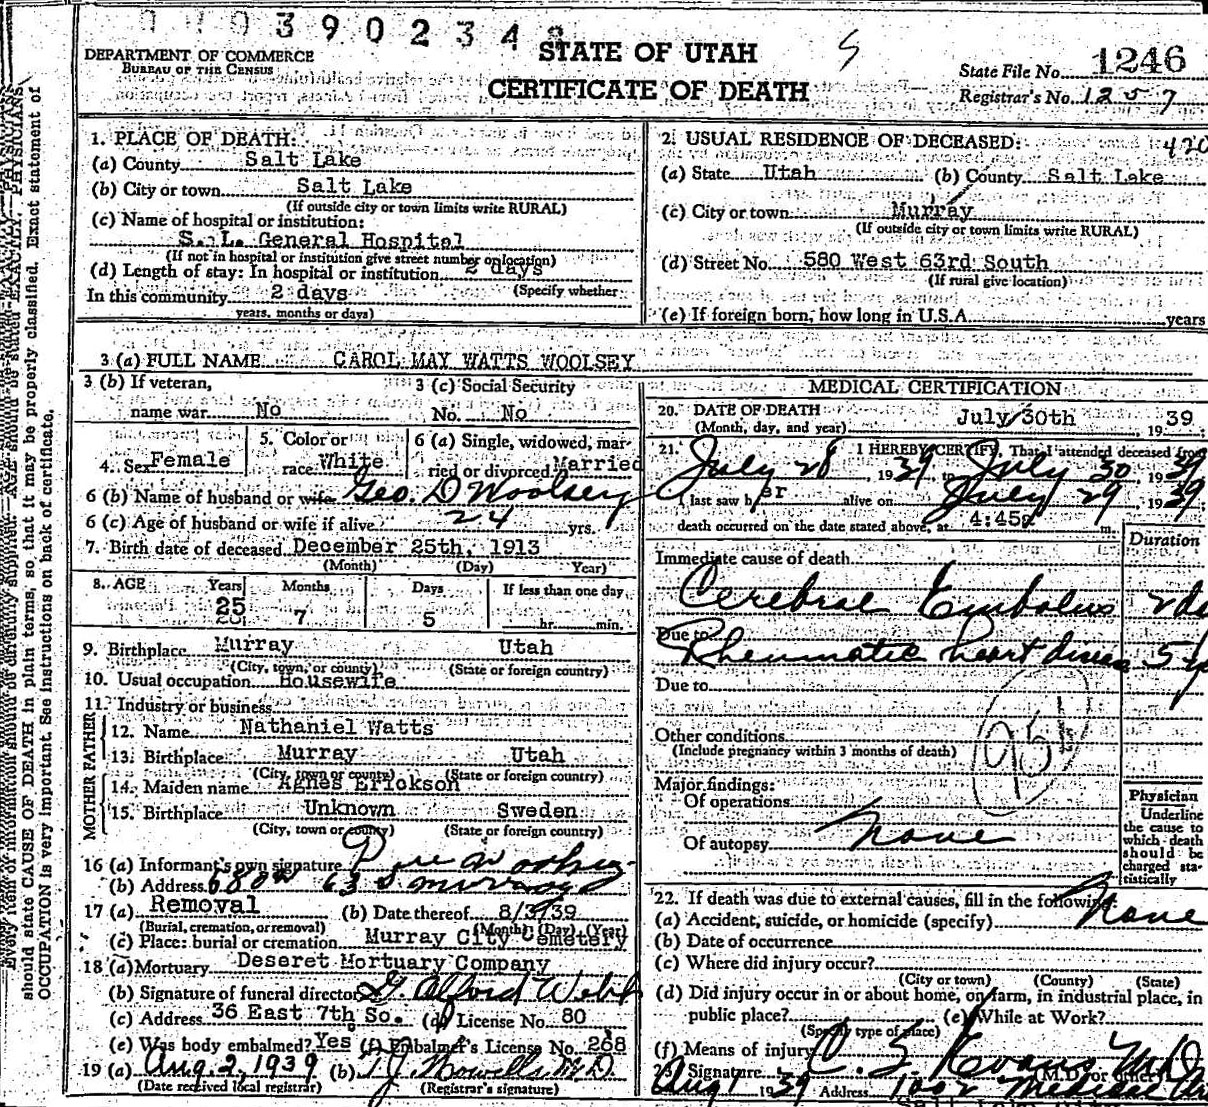 3 9 0 2 3 4
DEPARTMENT OF COMMERCE
BUREAU OF THE CENSUS
STATE OF UTAH
CERTIFICATE OF DEATH
State File No. 1246
Registrar's No. 1257
1. PLACE OF DEATH:
(a) County Salt Lake
(b) City or town Salt Lake
(If outside city or town limits write RURAL)
(c) Name of hospital or institution:
S. L. General Hospital
(If not in hospital or institution give street number or location)
(d) Length of stay: In hospital or institution 2 days
(Specify whether
In this community 2 days
years, months or days)
2. USUAL RESIDENCE OF DECEASED: 420
(a) State Utah (b) County Salt Lake
(c) City or town Murray
(If outside city or town limits write RURAL)
(d) Street No. 580 West 63rd South
(If rural give location)
(e) If foreign born, how long in U.S.A. years
3 (a) FULL NAME CAROL MAY WATTS WOOLSEY
3 (b) If veteran, name war No
3 (c) Social Security No. No
4. Sex Female
5. Color or race White
6 (a) Single, widowed, married or divorced Married
6 (b) Name of husband or wife Geo. D Woolsey
6 (c) Age of husband or wife if alive 24 yrs.
7. Birth date of deceased December 25th, 1913
(Month) (Day) Year)
8. AGE Years Months Days If less than one day
25 7 5 hr. min.
9. Birthplace Murray Utah
(City, town, or county) (State or foreign country)
10. Usual occupation Housewife
11. Industry or business
FATHER
12. Name Nathaniel Watts
13. Birthplace Murray Utah
(City, town or county) (State or foreign country)
MOTHER
14. Maiden name Agnes Erickson
15. Birthplace Unknown Sweden
(City, town or county) (State or foreign country)
16 (a) Informant's own signature Woolsey
(b) Address 580 W 63 S Murray
17 (a) Removal (b) Date thereof 8/3/39
(Burial, cremation, or removal) (Month) (Day) (Year)
(c) Place: burial or cremation Murray City Cemetery
18 (a) Mortuary Deseret Mortuary Company
(b) Signature of funeral director G. Alford Webb
(c) Address 36 East 7th So. (d) License No. 80
(e) Was body embalmed? Yes (f) Embalmer's License No. 268
19 (a) Aug. 2, 1939 (b) T.J. Howells M.D.
(Date received local registrar) (Registrar's signature)
MEDICAL CERTIFICATION
20. DATE OF DEATH July 30th, 1939
(Month, day, and year)
21. I HEREBY CERTIFY, That I attended deceased from
July 28, 1939, to July 30, 1939
last saw her alive on July 29, 1939
death occurred on the date stated above, at 4:45 m.
Duration
Immediate cause of death
Cerebral Embolus 2 da
Due to
Rheumatic heart disease 5 y
Due to
Other conditions
(Include pregnancy within 3 months of death)
95b
Major findings:
Of operations
Of autopsy None
Physician
Underline the cause to which death should be charged statistically
22. If death was due to external causes, fill in the following: None
(a) Accident, suicide, or homicide (specify)
(b) Date of occurrence
(c) Where did injury occur?
(City or town) (County) (State)
(d) Did injury occur in or about home, on farm, in industrial place, in
public place? (e) While at Work?
(Specify type of place)
(f) Means of injury
23. Signature C. S. Evans MD
(M.D. or other)
Aug 1 1939 Address 1002 Medical
should state CAUSE OF DEATH in plain terms, so that it may be properly classified. Exact statement of
OCCUPATION is very important. See instructions on back of certificate.